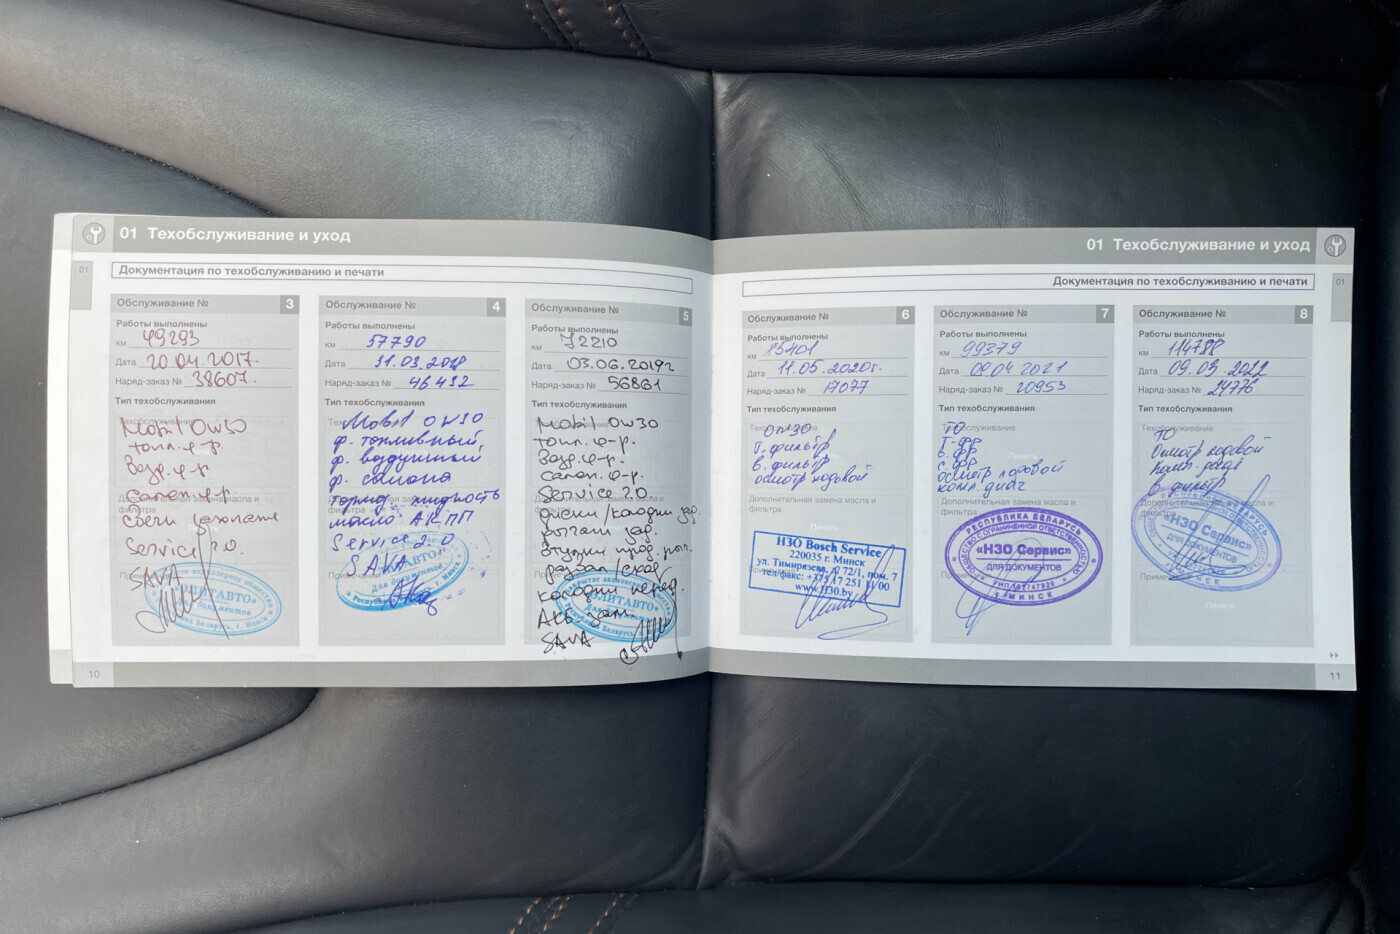 01 Техобслуживание и уход
01
Документация по техобслуживанию и печати
Обслуживание № 3
Работы выполнены
км 49293
Дата 20.04.2017.
Наряд-заказ № 38607.
Тип техобслуживания
Mobil 0W30
топл. ф-р.
Возд. ф-р.
Салон. ф-р.
Свечи зажигания
Service 2.0.
SAVA
Обслуживание № 4
Работы выполнены
км 57790
Дата 31.03.2018
Наряд-заказ № 46432
Тип техобслуживания
Mobil 0W30
ф. топливный,
ф. воздушный
ф. салона
тормоз. жидкость
масло АКПП
Service 2.0
SAVA
Для документов
Обслуживание № 5
Работы выполнены
км 72210
Дата 03.06.2019г
Наряд-заказ № 56861
Тип техобслуживания
Mobil 0W30
топл. ф-р.
Возд. ф-р.
Салон. ф-р.
Service 2.0
диски/колодки зад.
рычаги зад.
развал/схожд.
колодки перед.
АКБ зам.
SAVA
10
01 Техобслуживание и уход
01
Документация по техобслуживанию и печати
Обслуживание № 6
Работы выполнены
км 85401
Дата 11.05.2020г.
Наряд-заказ № 17077
Тип техобслуживания
0W30
Т. фильтр
В. фильтр
осмотр ходовой
НЗО Bosch Service
220035 г. Минск
ул. Тимирязева, д. 72/1, пом. 7
тел/факс: +375 17 251 11 00
www.H30.by
Обслуживание № 7
Работы выполнены
км 99379
Дата 09.04.2021
Наряд-заказ № 20953
Тип техобслуживания
ТО
Т-фр
в. фр
с. фр
осмотр ходовой
комп. диаг
РЕСПУБЛИКА БЕЛАРУСЬ
ОБЩЕСТВО С ОГРАНИЧЕННОЙ ОТВЕТСТВЕННОСТЬЮ
«НЗО Сервис»
ДЛЯ ДОКУМЕНТОВ
Г. МИНСК
Обслуживание № 8
Работы выполнены
км 114788
Дата 09.03.2022
Наряд-заказ № 24776
Тип техобслуживания
ТО
Осмотр ходовой
в фильтр
Дополнительная замена масла и
фильтра
«НЗО Сервис»
ДЛЯ ДОКУМЕНТОВ
11